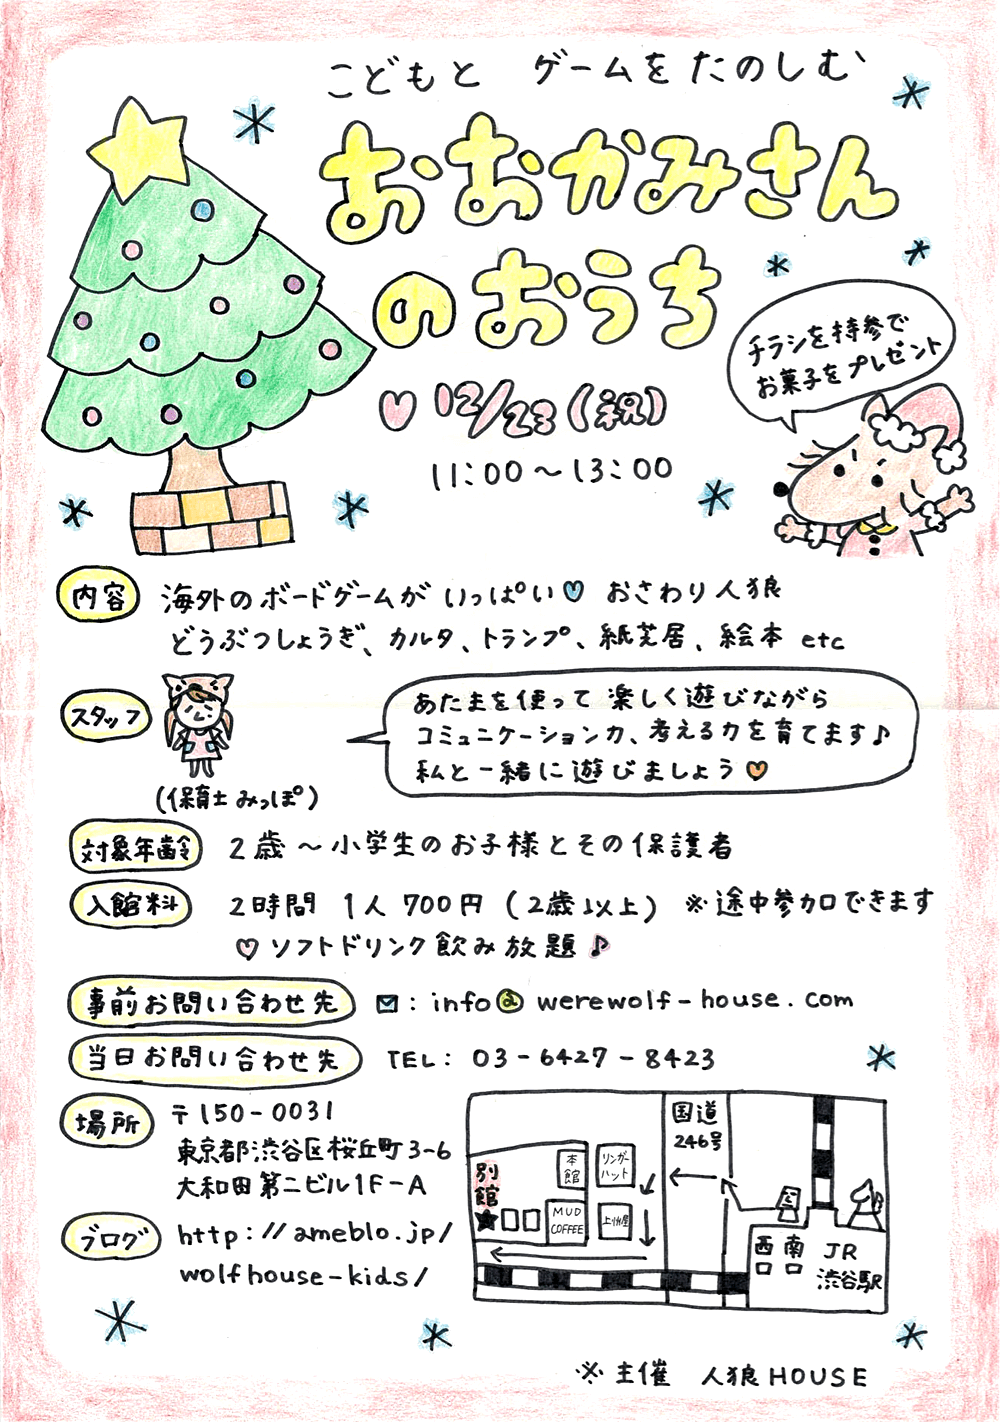 こどもと ゲームをたのしむ
おおかみさん
のおうち
♡12/23(祝)
11:00～13:00
チラシを持参で
お菓子をプレゼント
内容
海外のボードゲームがいっぱい♡ おさわり人狼
どうぶつしょうぎ、カルタ、トランプ、紙芝居、絵本 etc
スタッフ
(保育士みっぽ)
あたまを使って楽しく遊びながら
コミュニケーション力、考える力を育てます♪
私と一緒に遊びましょう♡
対象年齢
2歳～小学生のお子様とその保護者
入館料
2時間 1人 700円 (2歳以上) ※途中参加できます
♡ソフトドリンク飲み放題♪
事前お問い合わせ先
✉: info@werewolf-house.com
当日お問い合わせ先
TEL: 03-6427-8423
場所
〒150-0031
東京都渋谷区桜丘町3-6
大和田第二ビル1F-A
ブログ
http://ameblo.jp/
wolfhouse-kids/
国道
246号
本館
リンガーハット
別館
★
MUD
COFFEE
上州屋
西口
南口
JR
渋谷駅
※主催 人狼HOUSE